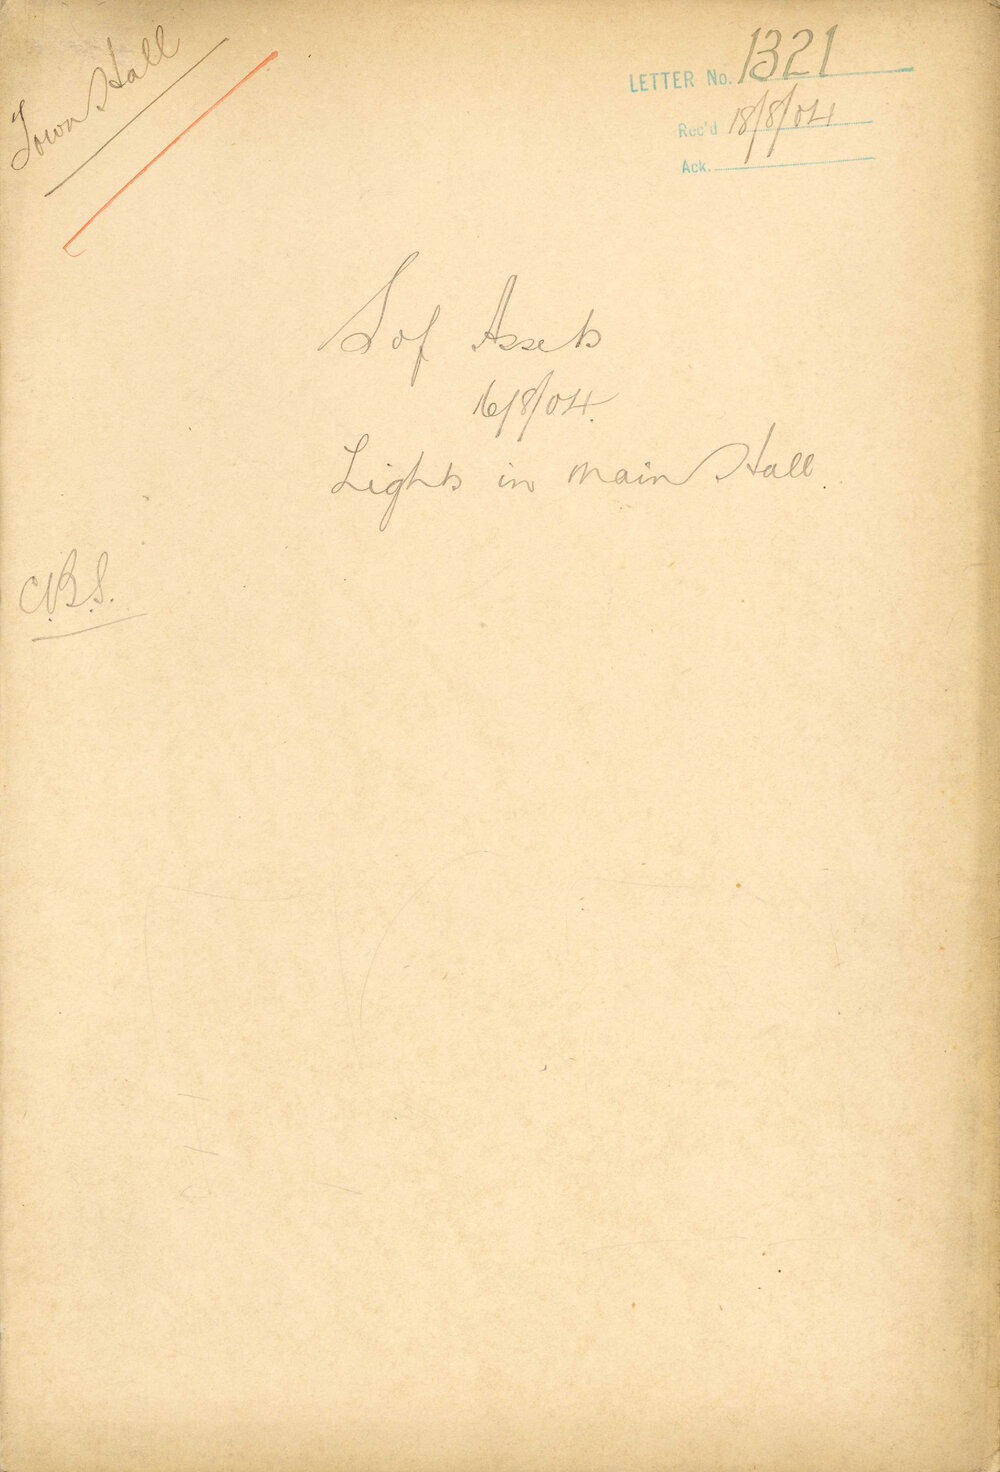 Town Hall
LETTER No. 1321
Rec'd 18/8/04
Ack.
S of Assets
16/8/04.
Lights in Main Hall.
C.B.S.